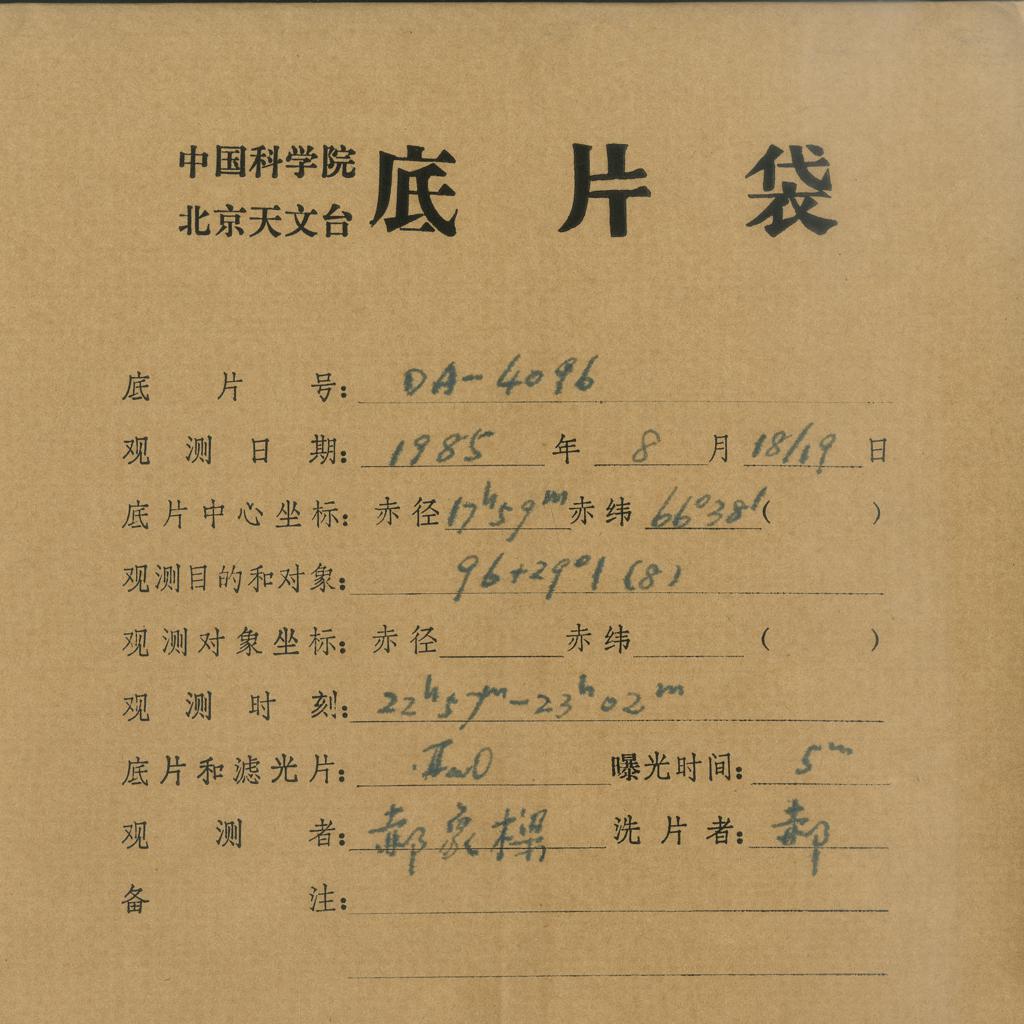 中国科学院
北京天文台
底片袋
底片号: DA-4096
观测日期: 1985年 8月 18/19日
底片中心坐标: 赤径 17ʰ59ᵐ 赤纬 66°38′( )
观测目的和对象: 96+29°1 (8)
观测对象坐标: 赤径 赤纬 ( )
观测时刻: 22ʰ57ᵐ-23ʰ02ᵐ
底片和滤光片: IIaO 曝光时间: 5ᵐ
观测者: 郝象樑 洗片者: 郝
备注: